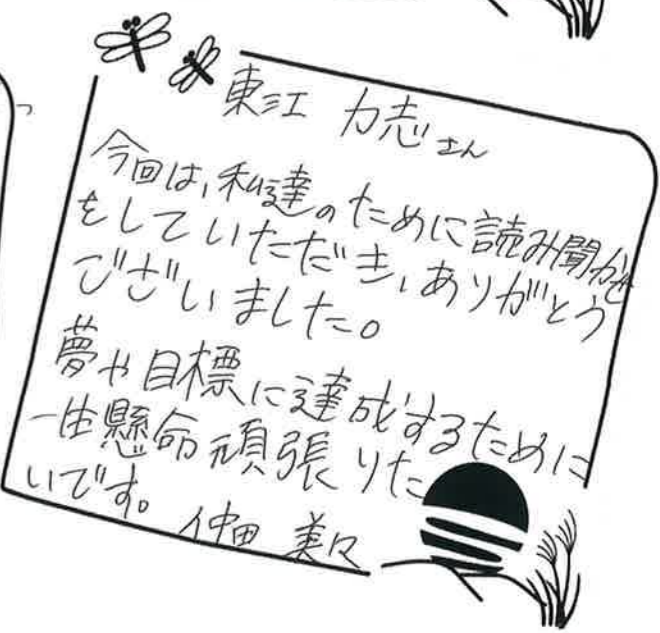 東江 力志さん
今回は、私達のために読み聞かせ
をしていただき、ありがとう
ございました。
夢や目標に達成するために
一生懸命頑張りた
いです。 仲田 美々